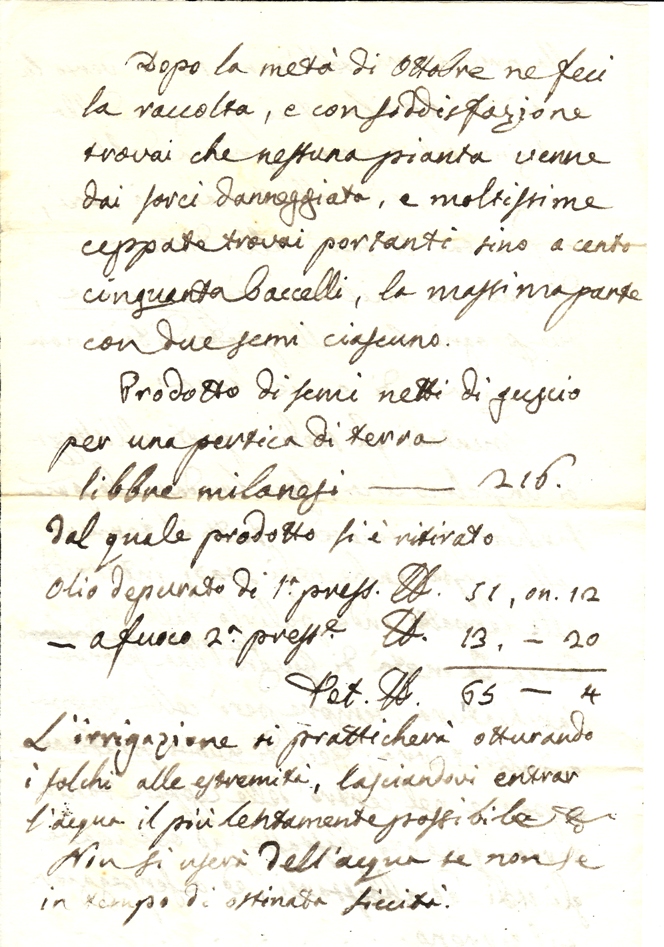 Dopo la metà di Ottobre ne feci
la raccolta, e con soddisfazione
trovai che nessuna pianta venne
dai sorci danneggiata, e moltissime
ceppate trovai portanti sino a cento
cinquanta baccelli, la massima parte
con due semi ciascuno.
Prodotto di semi netti di guscio
per una pertica di terra
libbre milanesi —— 216.
dal quale prodotto si è ritirato
Olio depurato di 1ª press. ℔. 51, on. 12
— a fuoco 2ª press.e ℔. 13, — 20
℔. 65 — 4
L'irrigazione si pratticherà otturando
i solchi alle estremità, lasciandovi entrar
l'acqua il più lentamente possibile
Non si userà dell'acqua se non se
in tempo di ostinata siccità.